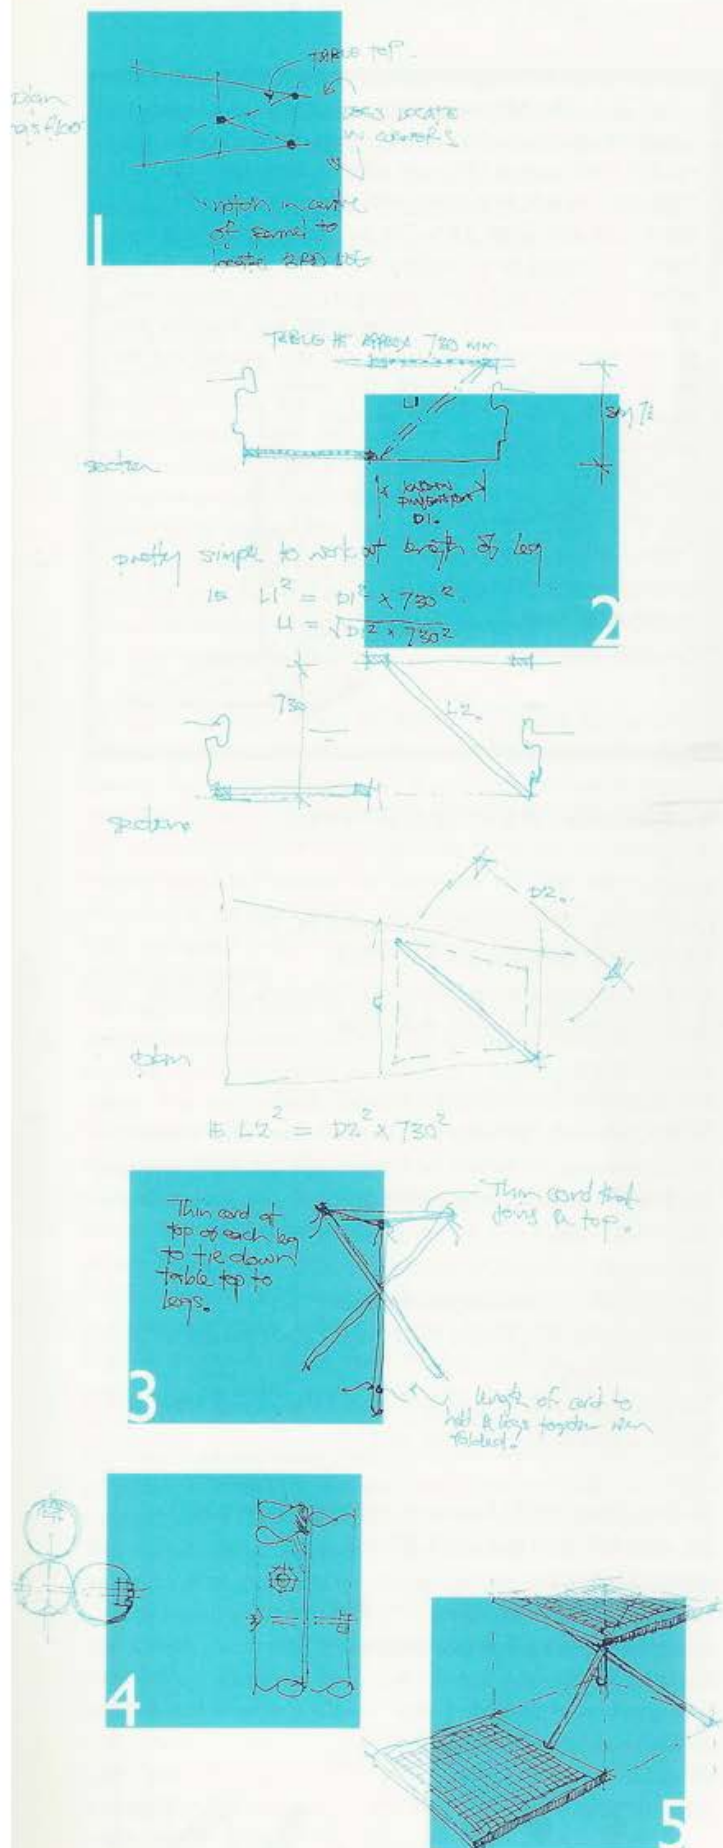 TABLE TOP.
plan
LEGS LOCATE
IN CORNERS
notch in centre
of panel to
locate 3RD LEG
1
TABLE HT APPROX 730 mm
L1
section
KNOWN
DIMENSION
D1.
pretty simple to work out length of leg
IE L1² = D1² x 730²
L1 = √D1² x 730²
2
730
L2.
section
D2.
plan
IE L2² = D2² x 730²
Thin cord at
top of each leg
to tie down
table top to
legs.
Thin cord that
joins top.
3
length of cord to
hold legs together when
folded.
4
5